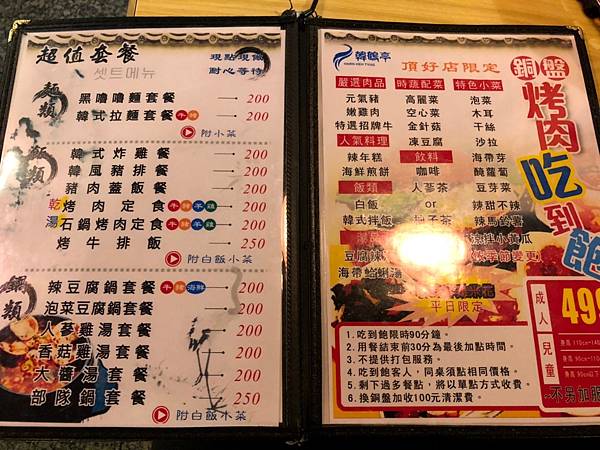 超值套餐
셋트메뉴
現點現做
耐心等待
麵類
黑嚕嚕麵套餐 200
韓式拉麵套餐 牛 豬 200
附小菜
飯類
韓式炸雞餐 200
韓風豬排餐 200
豬肉蓋飯餐 200
乾烤肉定食 牛 豬 羊 雞 200
湯石鍋烤肉定食 牛 豬 羊 雞 200
烤牛排飯 250
附白飯小菜
鍋類
辣豆腐鍋套餐 牛 豬 海鮮 200
泡菜豆腐鍋套餐 200
人參雞湯套餐 200
香菇雞湯套餐 200
大醬湯套餐 200
部隊鍋套餐 250
附白飯小菜
韓鶴亭
頂好店限定
銅盤烤肉吃到飽
嚴選肉品 時蔬配菜 特色小菜
元氣豬 高麗菜 泡菜
嫩雞肉 空心菜 木耳
特選招牌牛 金針菇 干絲
人氣料理 凍豆腐 沙拉
辣年糕 飲料 海帶芽
海鮮煎餅 咖啡 醃蘿蔔
飯類 人蔘茶 豆芽菜
白飯 or 辣甜不辣
韓式拌飯 柚子茶 辣馬鈴薯
涼拌小黃瓜
豆腐
海帶蛤蜊湯
平日限定
1.吃到飽限時90分鐘。
2.用餐結束前30分為最後加點時間。
3.不提供打包服務。
4.吃到飽客人,同桌須點相同價格。
5.剩下過多餐點,將以單點方式收費。
6.換銅盤加收100元清潔費。
成人 499
兒童
不另加服